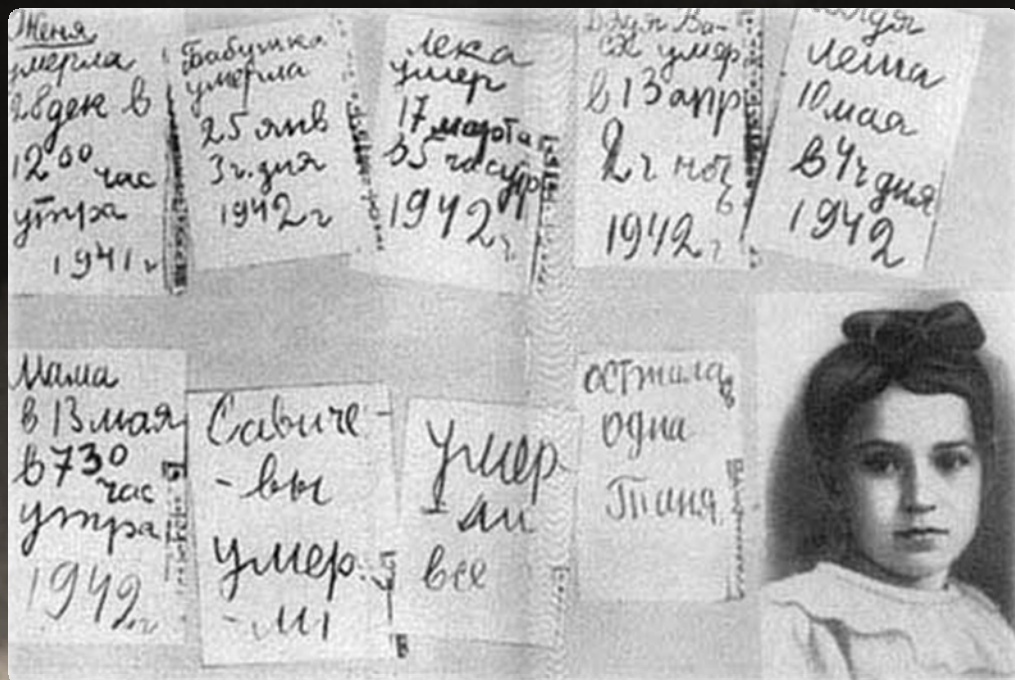 Женя
умерла
28 дек в
12 00 час
утра
1941 г
Бабушка
умерла
25 янв
3 ч. дня
1942 г
Лека
умер
17 марта
в 5 час утр
1942 г.
Дядя Ва-
ся умер
в 13 апр
2 ч ночь
1942 г
Дядя
Леша
10 мая
в 4 ч дня
1942
Мама
в 13 мая
в 7 30
час
утра
1942 г
Савиче-
-вы
умер.
-ли
Умер
-ли
все
осталась
одна
Таня